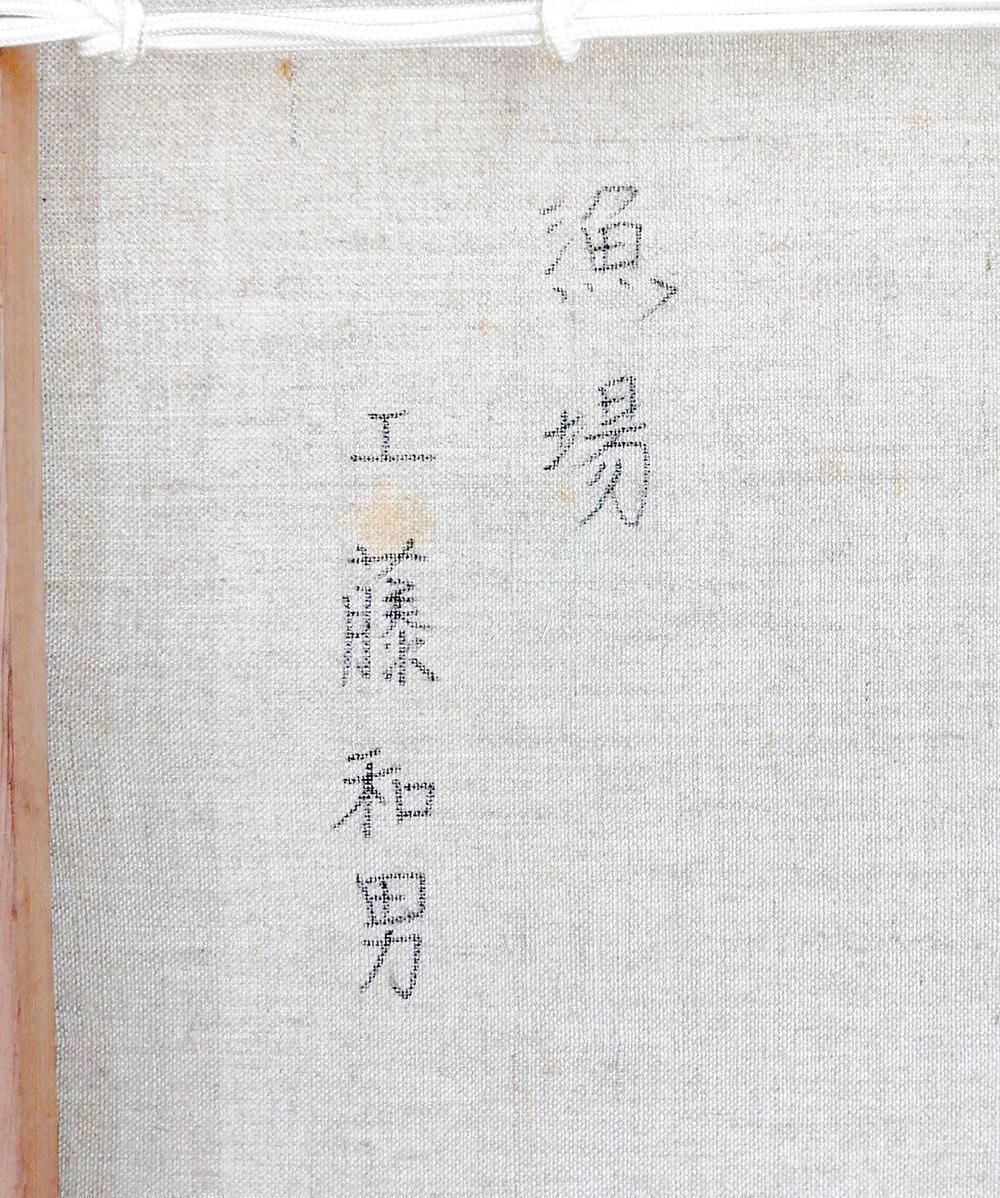 漁場
工藤和男